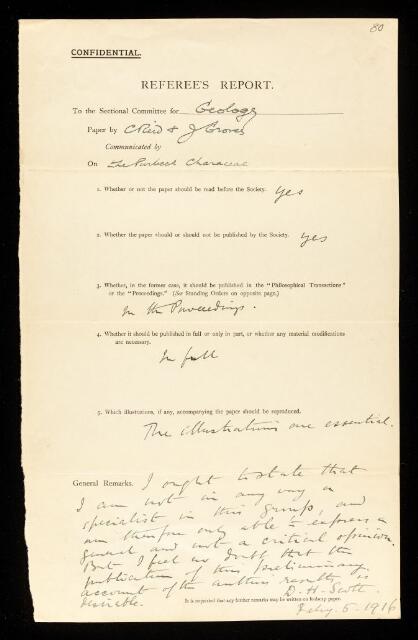 80
CONFIDENTIAL.
REFEREE'S REPORT.
To the Sectional Committee for Geology
Paper by C Reid & J Groves
Communicated by
On The Purbeck Characeae
1. Whether or not the paper should be read before the Society. Yes
2. Whether the paper should or should not be published by the Society. Yes
3. Whether, in the former case, it should be published in the "Philosophical Transactions"
or the "Proceedings." (See Standing Orders on opposite page.)
In the Proceedings.
4. Whether it should be published in full or only in part, or whether any material modifications
are necessary.
In full
5. Which illustrations, if any, accompanying the paper should be reproduced.
The illustrations are essential.
General Remarks. I ought to state that
I am not in any way a
specialist in this group, and
am therefore only able to express a
general and not a critical opinion.
But I feel no doubt that the
publication of this preliminary
account of the authors results is
desirable.
D. H. Scott
It is requested that any further remarks may be written on foolscap paper.
Feby. 5. 1916